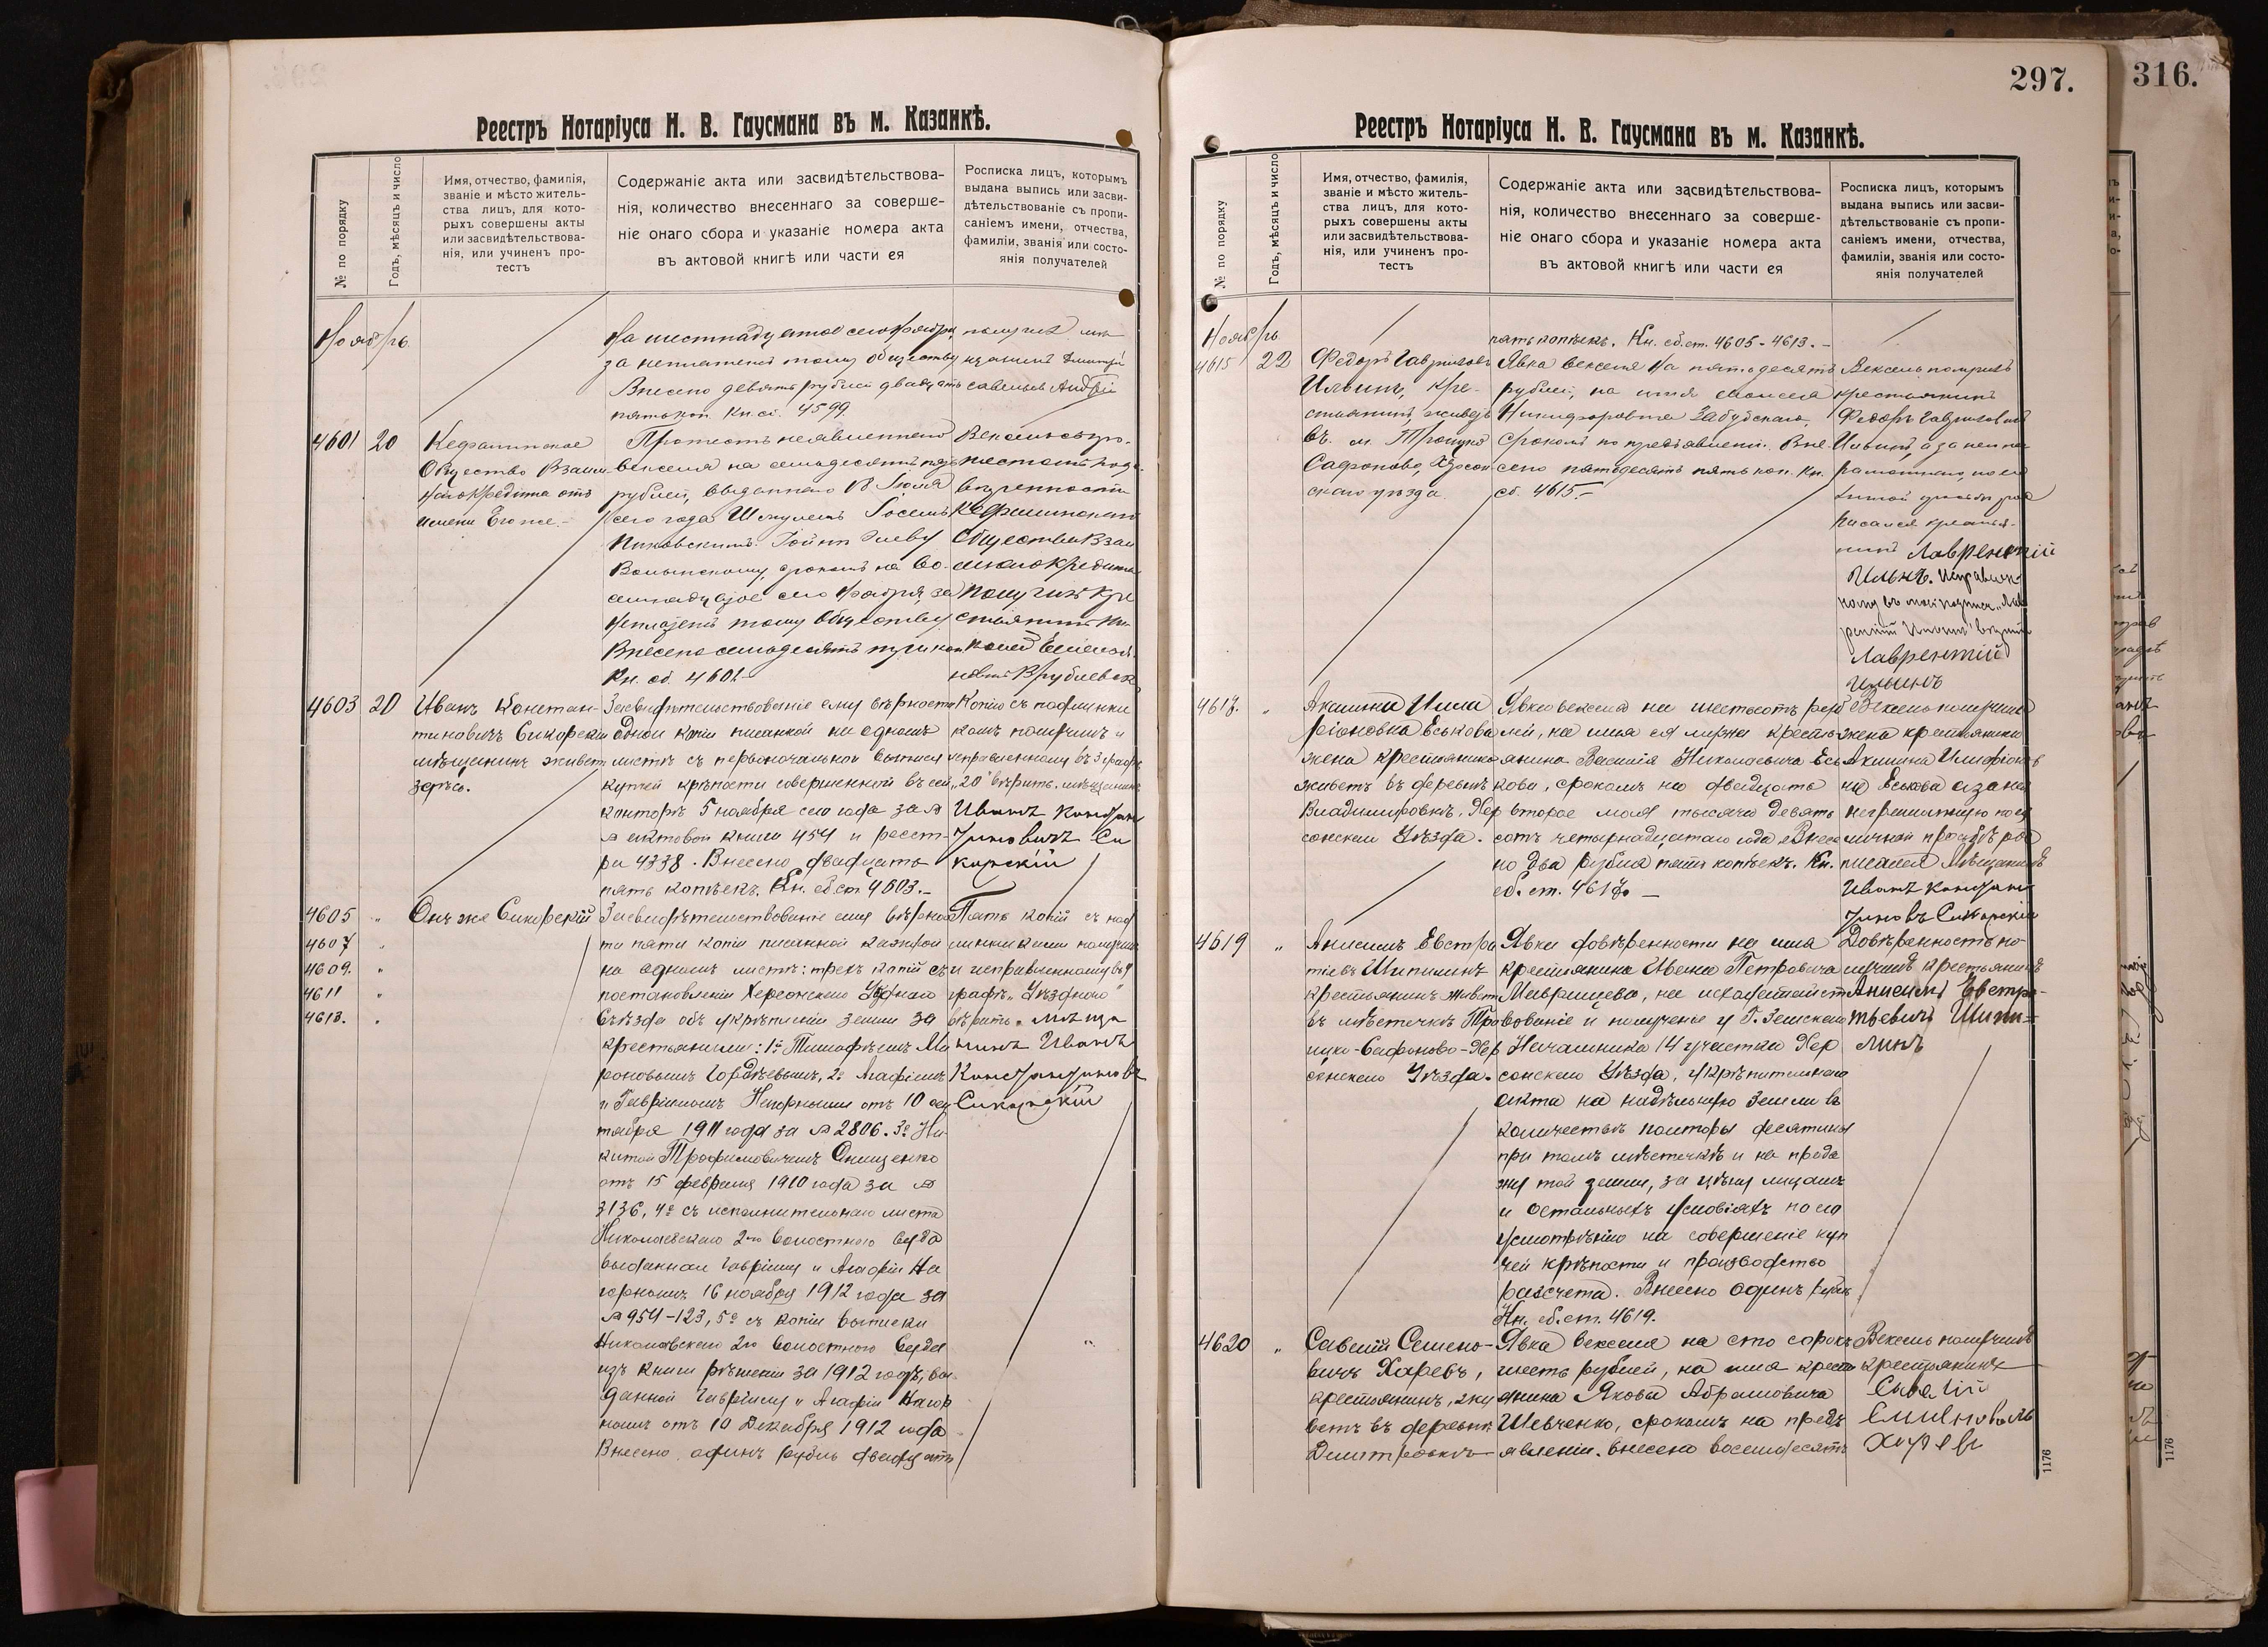 Реестръ Нотаріуса Н. В. Гаусмана въ м. Казанкѣ.
№ по порядку
Годъ, мѣсяцъ и число
Имя, отчество, фамилія,
званіе и мѣсто житель-
ства лицъ, для кото-
рыхъ совершены акты
или засвидѣтельствова-
нія, или учиненъ про-
тестъ
Содержаніе акта или засвидѣтельствова-
нія, количество внесеннаго за соверше-
ніе онаго сбора и указаніе номера акта
въ актовой книгѣ или части ея
Росписка лицъ, которымъ
выдана выпись или засви-
дѣтельствованіе съ пропи-
саніемъ имени, отчества,
фамиліи, званія или состо-
янія получателей
Ноябрь
На шестнадцатое сего Ноября,
за неплатежъ тому обществу
Внесено девять рублей двадцать
пять коп. Кн. сб. 4599
4601 20
Общество Взаим
наго Кредита отъ
имени Его же.-
Протестъ неявленнаго
векселя на семьдесятъ пять
рублей, выданнаго 13 Іюля
сего года
Волынскому, срокомъ на во-
семнадцатое сего Ноября, за
неплатежъ тому Обществу
Внесено семьдесятъ три коп
Кн. сб. 4601-
Вексель съ про-
Общества Взаи
мнаго Кредита
получилъ кре
стьянинъ Ни
колай
4603 20
Иванъ Констан-
тиновичъ Сикорскій
мѣщанинъ живет
здѣсь.
Засвидѣтельствованіе ему вѣрности
одной копіи писанной на одномъ
листѣ съ первоначальной выписи
купчей крѣпости совершенной въ сей
конторѣ 5 ноября сего года за №
№ актовой книги 454 и реест-
ра 4338. Внесено двадцать
пять копѣекъ. Кн. сб. ст. 4603.-
Копію съ подлинни
комъ получилъ и
исправленному въ 3 графѣ
„20" вѣрить. мѣщанинъ
Иванъ Констан
тиновичъ Си
корскій
4605 "
4607 "
4609. "
4611 "
4613. "
Онъ же Сикорскій
Засвидѣтельствованіе ему вѣрнос
ти пяти копіи писанной каждой
на одномъ листѣ: трехъ копій съ
постановленій Херсонскаго Уѣзднаго
Съѣзда объ укрѣпленіи земли за
крестьянами: 1º Тимофѣемъ Ма
роновымъ Гордѣевымъ, 2º Агафіемъ
и Гавріиломъ Нагорными отъ 10 сен
тября 1911 года за № 2806. 3º Ни-
китой Трофимовичемъ Онищенко
отъ 15 февраля 1910 года за №
3136, 4º съ исполнительнаго листа
Николаевскаго 2го волостного суда
выданнаго Гавріилу и Агафіи На
горнымъ 16 ноября 1912 года за
№ 954-123, 5º съ копіи выписки
Николаевскаго 2го волостного суда
изъ книги рѣшеній за 1912 годъ, вы-
данной Гавріилу и Агафіи Нагор
нымъ отъ 10 Декабря 1912 года
Внесено одинъ рубль двадцать
Пять копій съ под
линниками получилъ
и исправленному въ 4
графѣ „Уѣзднаго"
вѣрить. Мѣща
нинъ Иванъ
Константиновъ
Сикорскій
297.
Реестръ Нотаріуса Н. В. Гаусмана въ м. Казанкѣ.
№ по порядку
Годъ, мѣсяцъ и число
Имя, отчество, фамилія,
званіе и мѣсто житель-
ства лицъ, для кото-
рыхъ совершены акты
или засвидѣтельствова-
нія, или учиненъ про-
тестъ
Содержаніе акта или засвидѣтельствова-
нія, количество внесеннаго за соверше-
ніе онаго сбора и указаніе номера акта
въ актовой книгѣ или части ея
Росписка лицъ, которымъ
выдана выпись или засви-
дѣтельствованіе съ пропи-
саніемъ имени, отчества,
фамиліи, званія или состо-
янія получателей
Ноябрь
пять копѣекъ. Кн. сб. ст. 4605-4613.-
4615 22
Федоръ Гавриловъ
Ильинъ, кре-
стьянинъ живетъ
въ м. Троицко
Сафоново, Херсон
скаго уѣзда.
Явка векселя на пятьдесятъ
рублей, на имя Моисея
Никифоровича Забудскаго,
срокомъ по предъявленію. Вне
сено пятьдесятъ пять коп. Кн.
сб. 4615.-
Вексель получилъ
крестьянинъ
Федоръ Гавриловъ
Ильинъ, а за него не
грамотнаго, по его
личной просьбѣ рос
писался крестья-
нинъ Лаврентій
Ильинъ. Исправлен-
ному въ моей подписи „Лав
рентій Ильинъ" вѣрить
Лаврентій
Ильинъ
4617. "
Акилина Или
ріоновна Еськова
жена крестьянина
живетъ въ деревнѣ
Владимировкѣ, Хер
сонскаго Уѣзда.
Явка векселя на шестьсотъ руб
лей, на имя ея мужа кресть
янина Василія Николаевича Есь
кова, срокомъ на двадцать
второе мая тысяча девять
сотъ четырнадцатаго года. Внесе
но два рубля пять копѣекъ. Кн.
сб. ст. 4617. -
Вексель получила
жена крестьянина
Акилина Иларіонов
на Еськова а за нея
неграмотную по ея
личной просьбѣ рос
писался Мѣщанинъ
Иванъ Констан
тиновъ Сикорскій
4619 "
Анисимъ Евстра
тіевъ Шипилинъ
крестьянинъ живет
въ мѣстечкѣ Тро
ицко-Сафоново-Хер
сонскаго Уѣзда.
Явка довѣренности на имя
крестьянина Ивана Петровича
Маврищева, на исходатайст
вованіе и полученіе у Г. Земскаго
Начальника 14 участка Хер
сонскаго Уѣзда, укрѣпительнаго
акта на надѣльную землю въ
количествѣ полторы десятины
при томъ мѣстечкѣ и на прода
жу той земли, за цѣну лицамъ
и остальныхъ условіяхъ по его
усмотрѣнію на совершеніе куп
чей крѣпости и производство
разсчета. Внесено одинъ рубль
Кн. сб. ст. 4619.
Довѣренность по-
лучилъ крестьянинъ
Анисимъ Евстра-
тьевичъ Шипи-
линъ
4620 "
Савелій Семено-
вичъ Харевъ,
крестьянинъ, жи
ветъ въ деревнѣ
Дмитровкѣ
Явка векселя на сто сорокъ
шесть рублей, на имя кресть
янина Якова Абрамовича
Шевченко, срокомъ на предъ
явленіи. внесено восемьдесятъ
Вексель получилъ
крестьянинъ
Савелій
Харевъ
1176
316.
1176